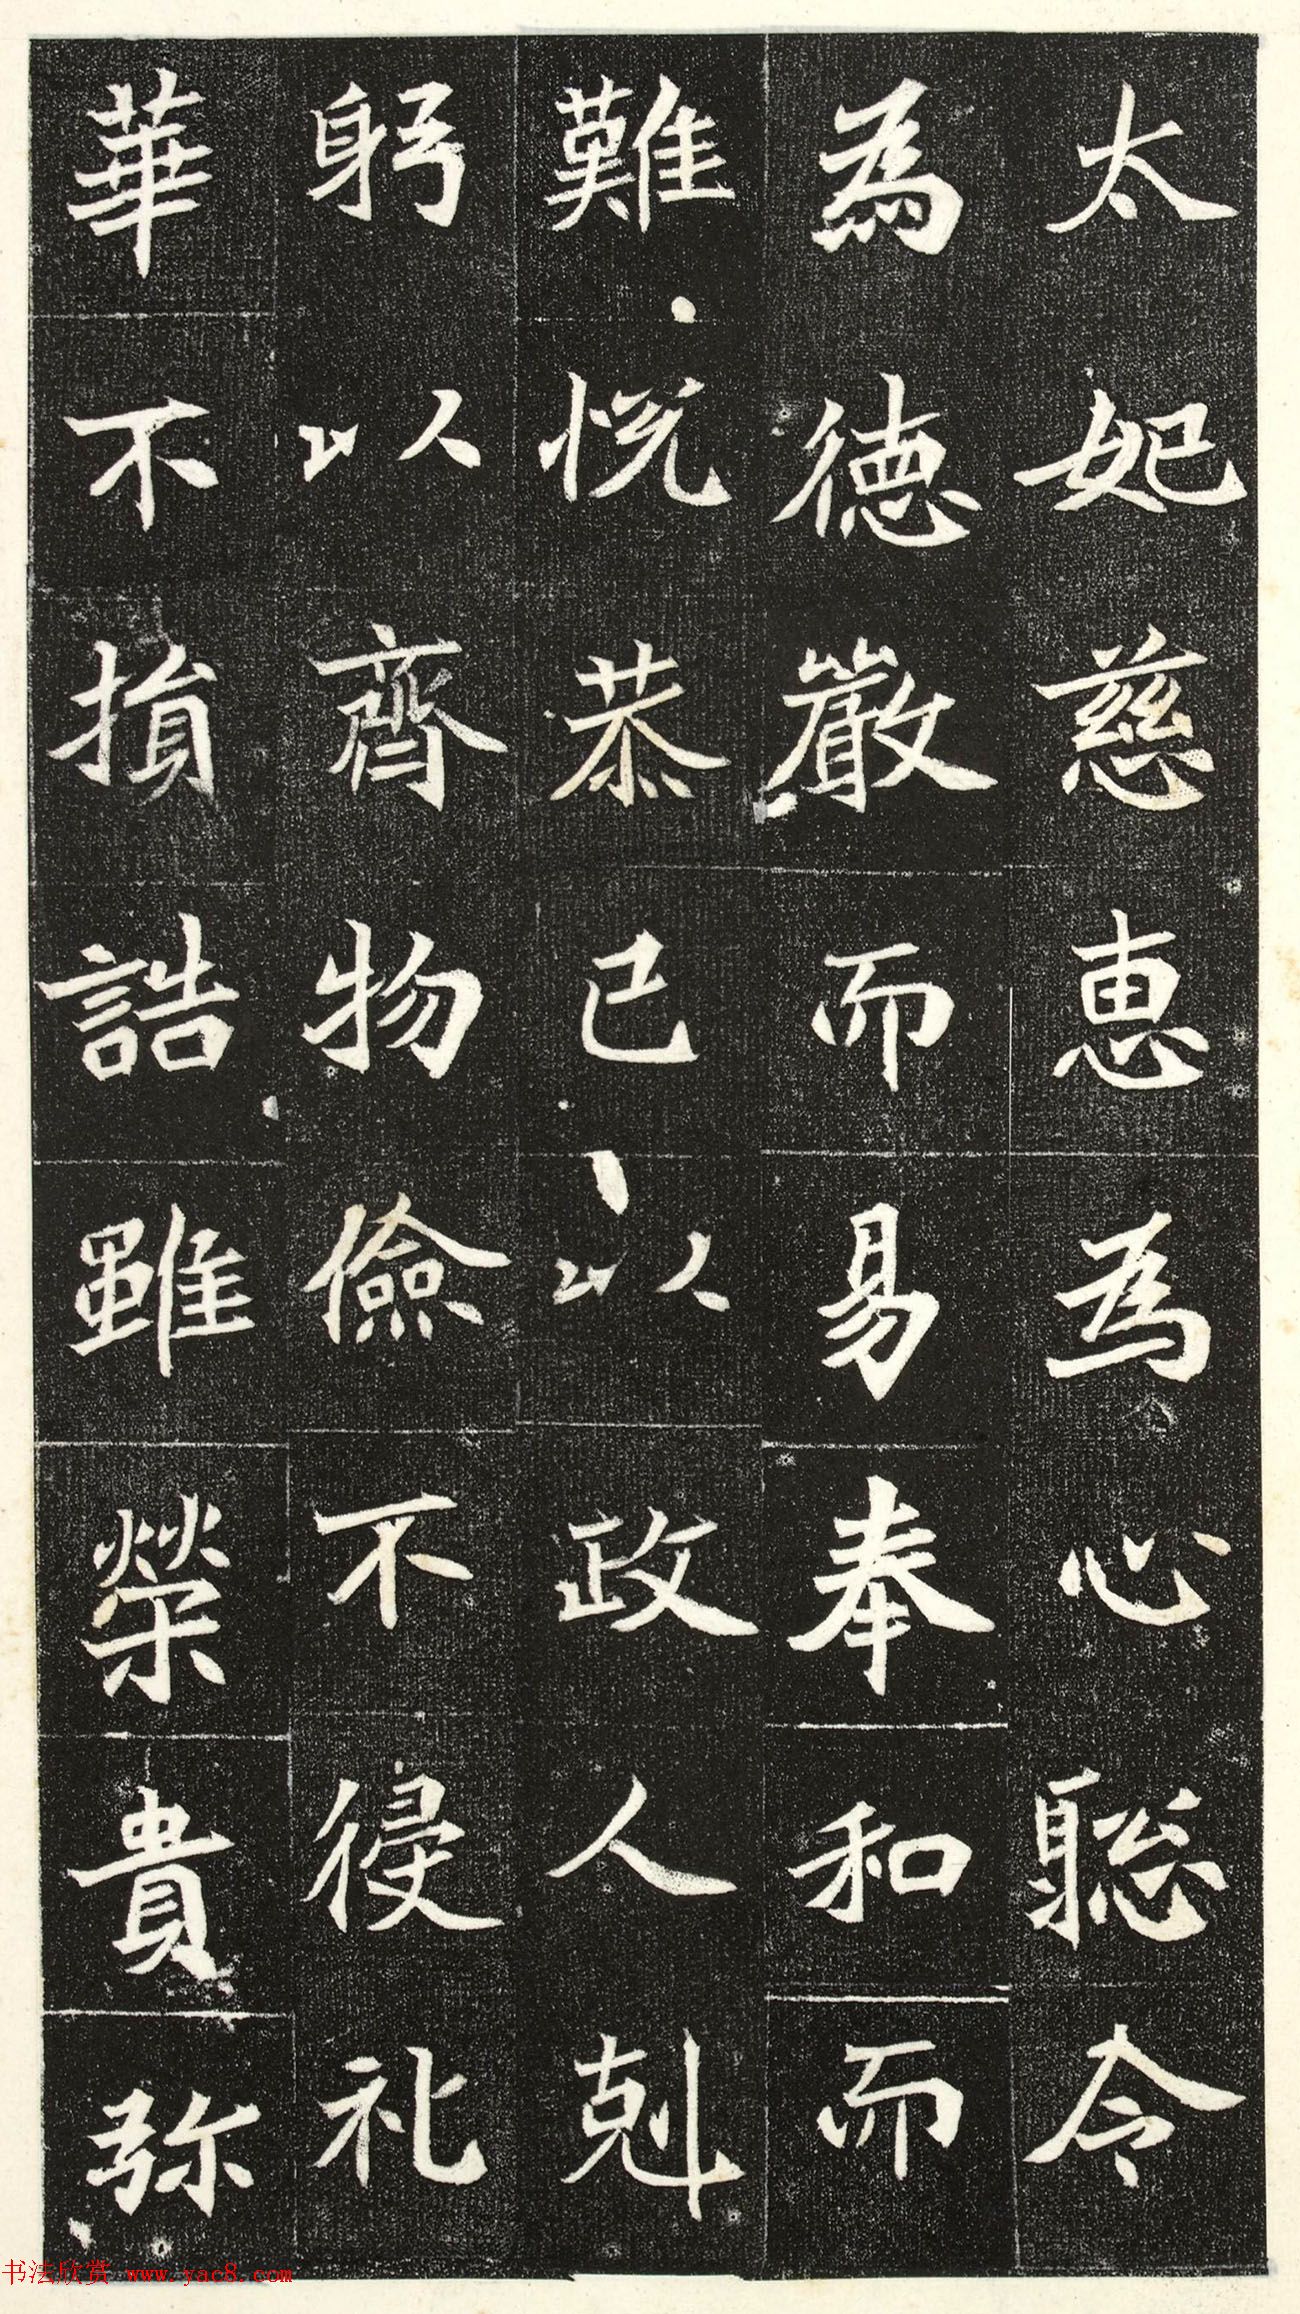 太妃慈恵為心聡令
為徳巖而易奉和而
難悦恭己以政人剋
躬以齊物儉不侵礼
華不損誥雖榮貴弥
书法欣赏 www.yac8.com